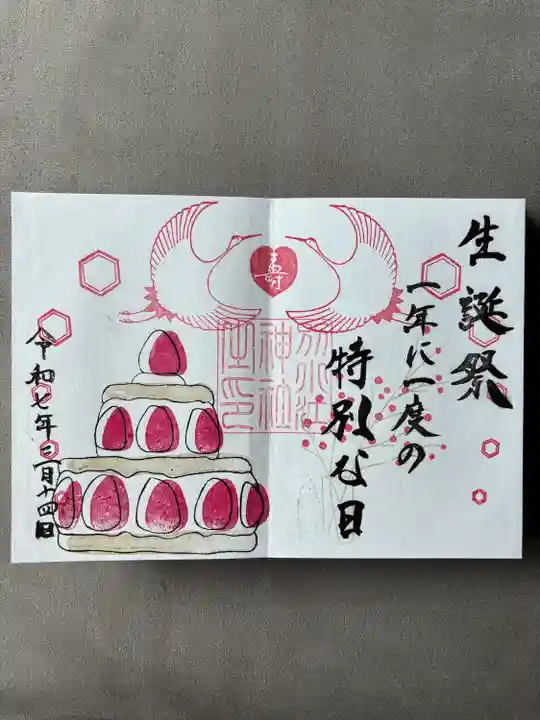 生誕祭
一年に一度の
特別な日
寿
別小江
神社
之印
令和七年二月十四日